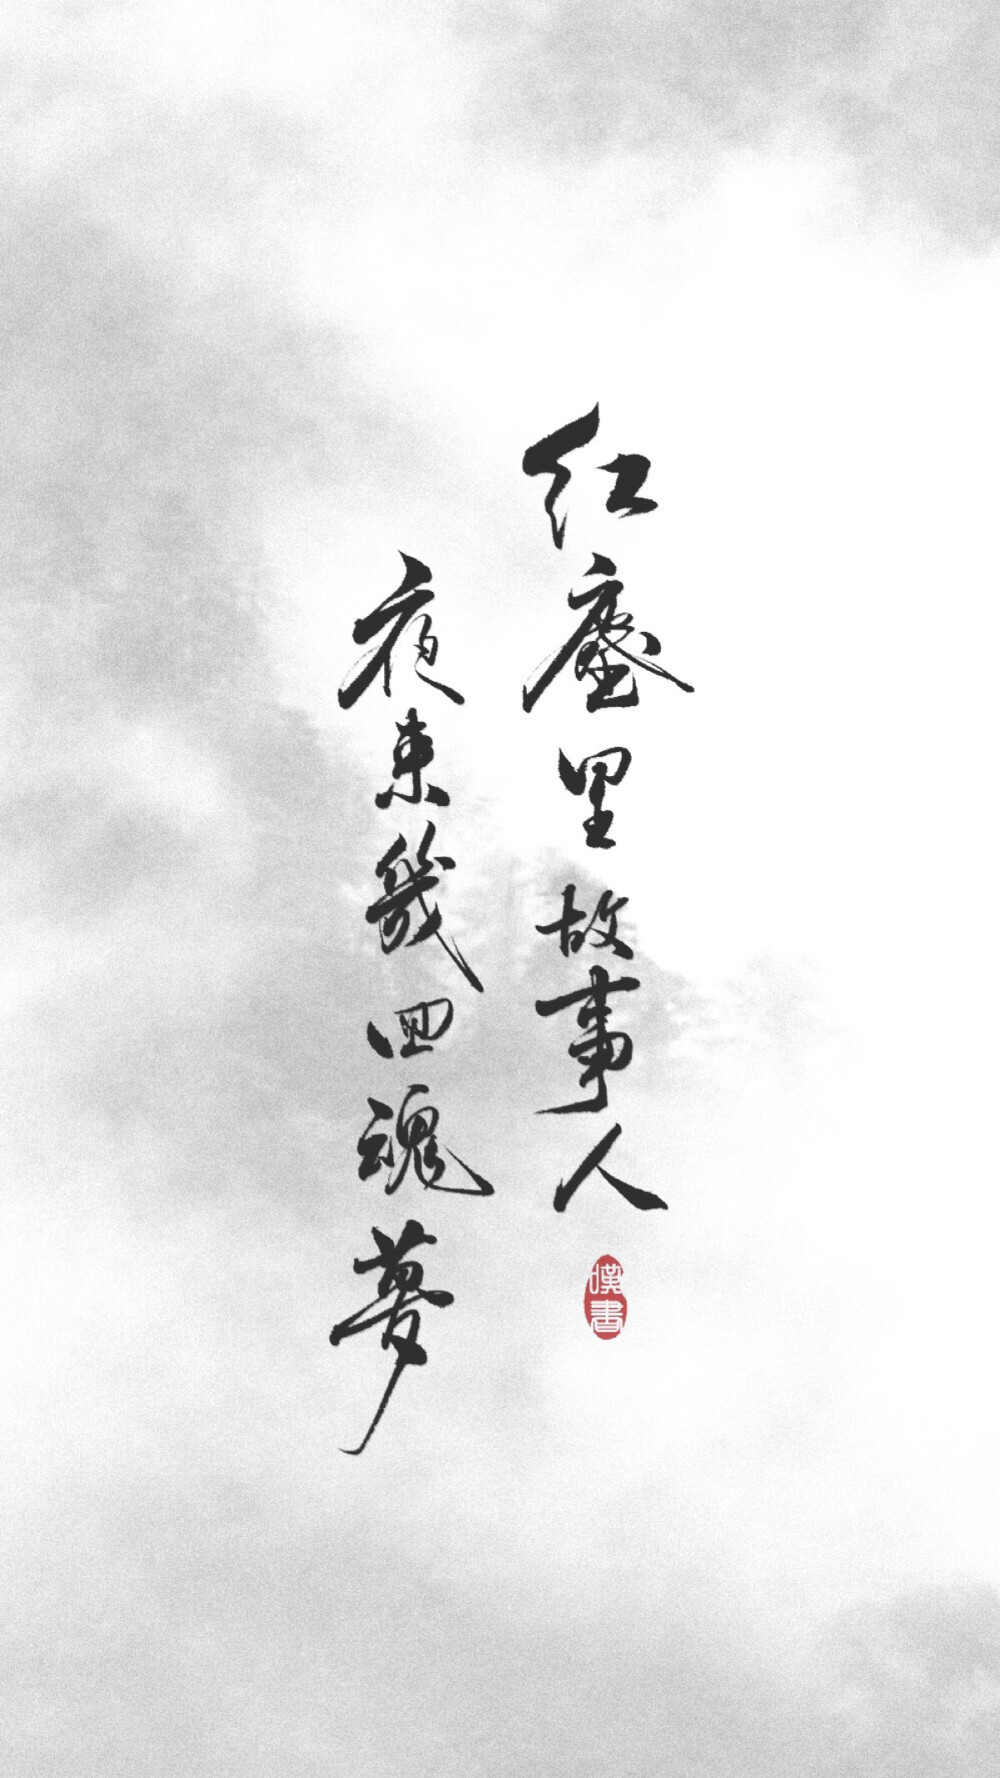 红塵里故事人
夜来幾回魂夢
嘆書